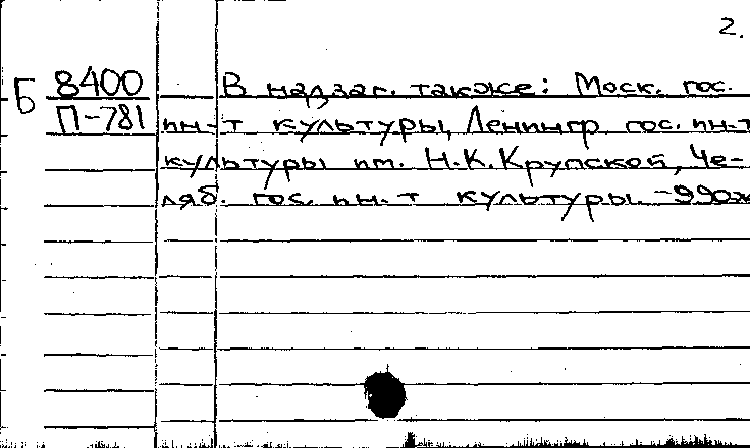 2.
Б 8400
П-781
В надзаг. также: Моск. гос.
ин-т культуры, Ленингр. гос. ин-т
культуры им. Н.К. Крупской, Че-
ляб. гос. ин-т культуры. -990ж